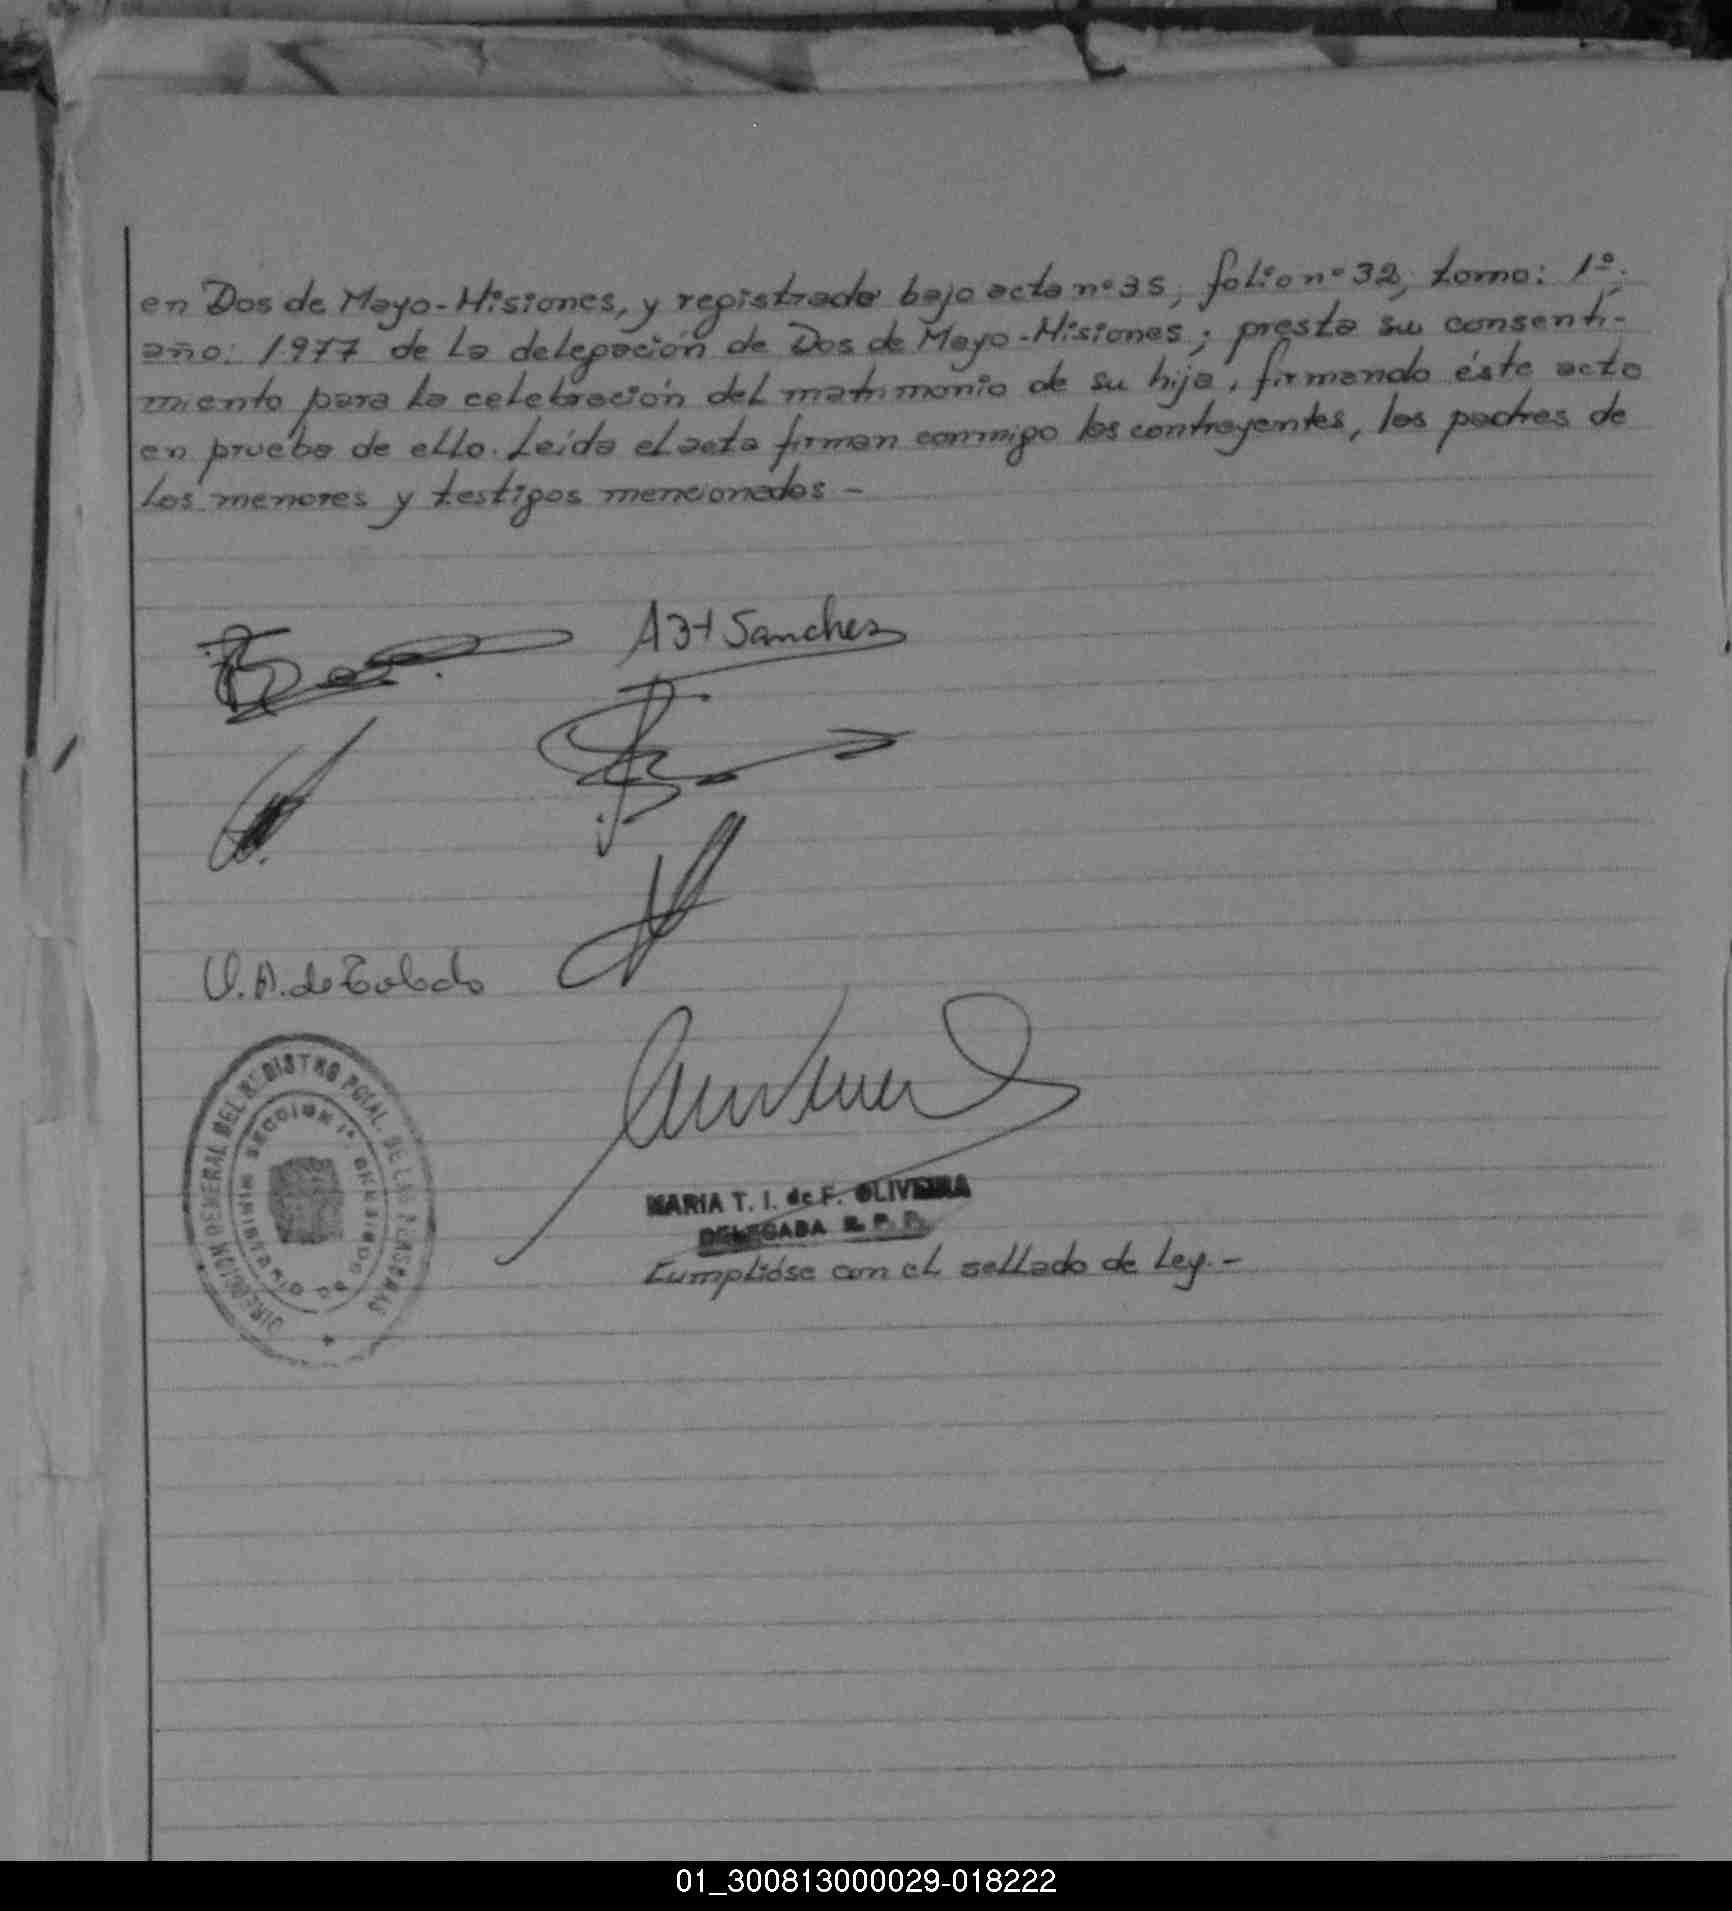 en Dos de Mayo-Misiones, y registrado bajo acta nº 35, folio nº 32, tomo: 1º,
año: 1977 de la delegación de Dos de Mayo-Misiones; presta su consenti-
miento para la celebración del matrimonio de su hija, firmando éste acto
en prueba de ello. Leída el acta firman conmigo los contrayentes, los padres de
los menores y testigos mencionados -
Sanchez
V. A. de Toledo
DIRECCION GENERAL DEL REGISTRO PCIAL. DE LAS PERSONAS
SECCION 1ª
MARIA T. I. de F. OLIVEIRA
DELEGADA R. P. P.
Cumplióse con el sellado de Ley.-
01_300813000029-018222